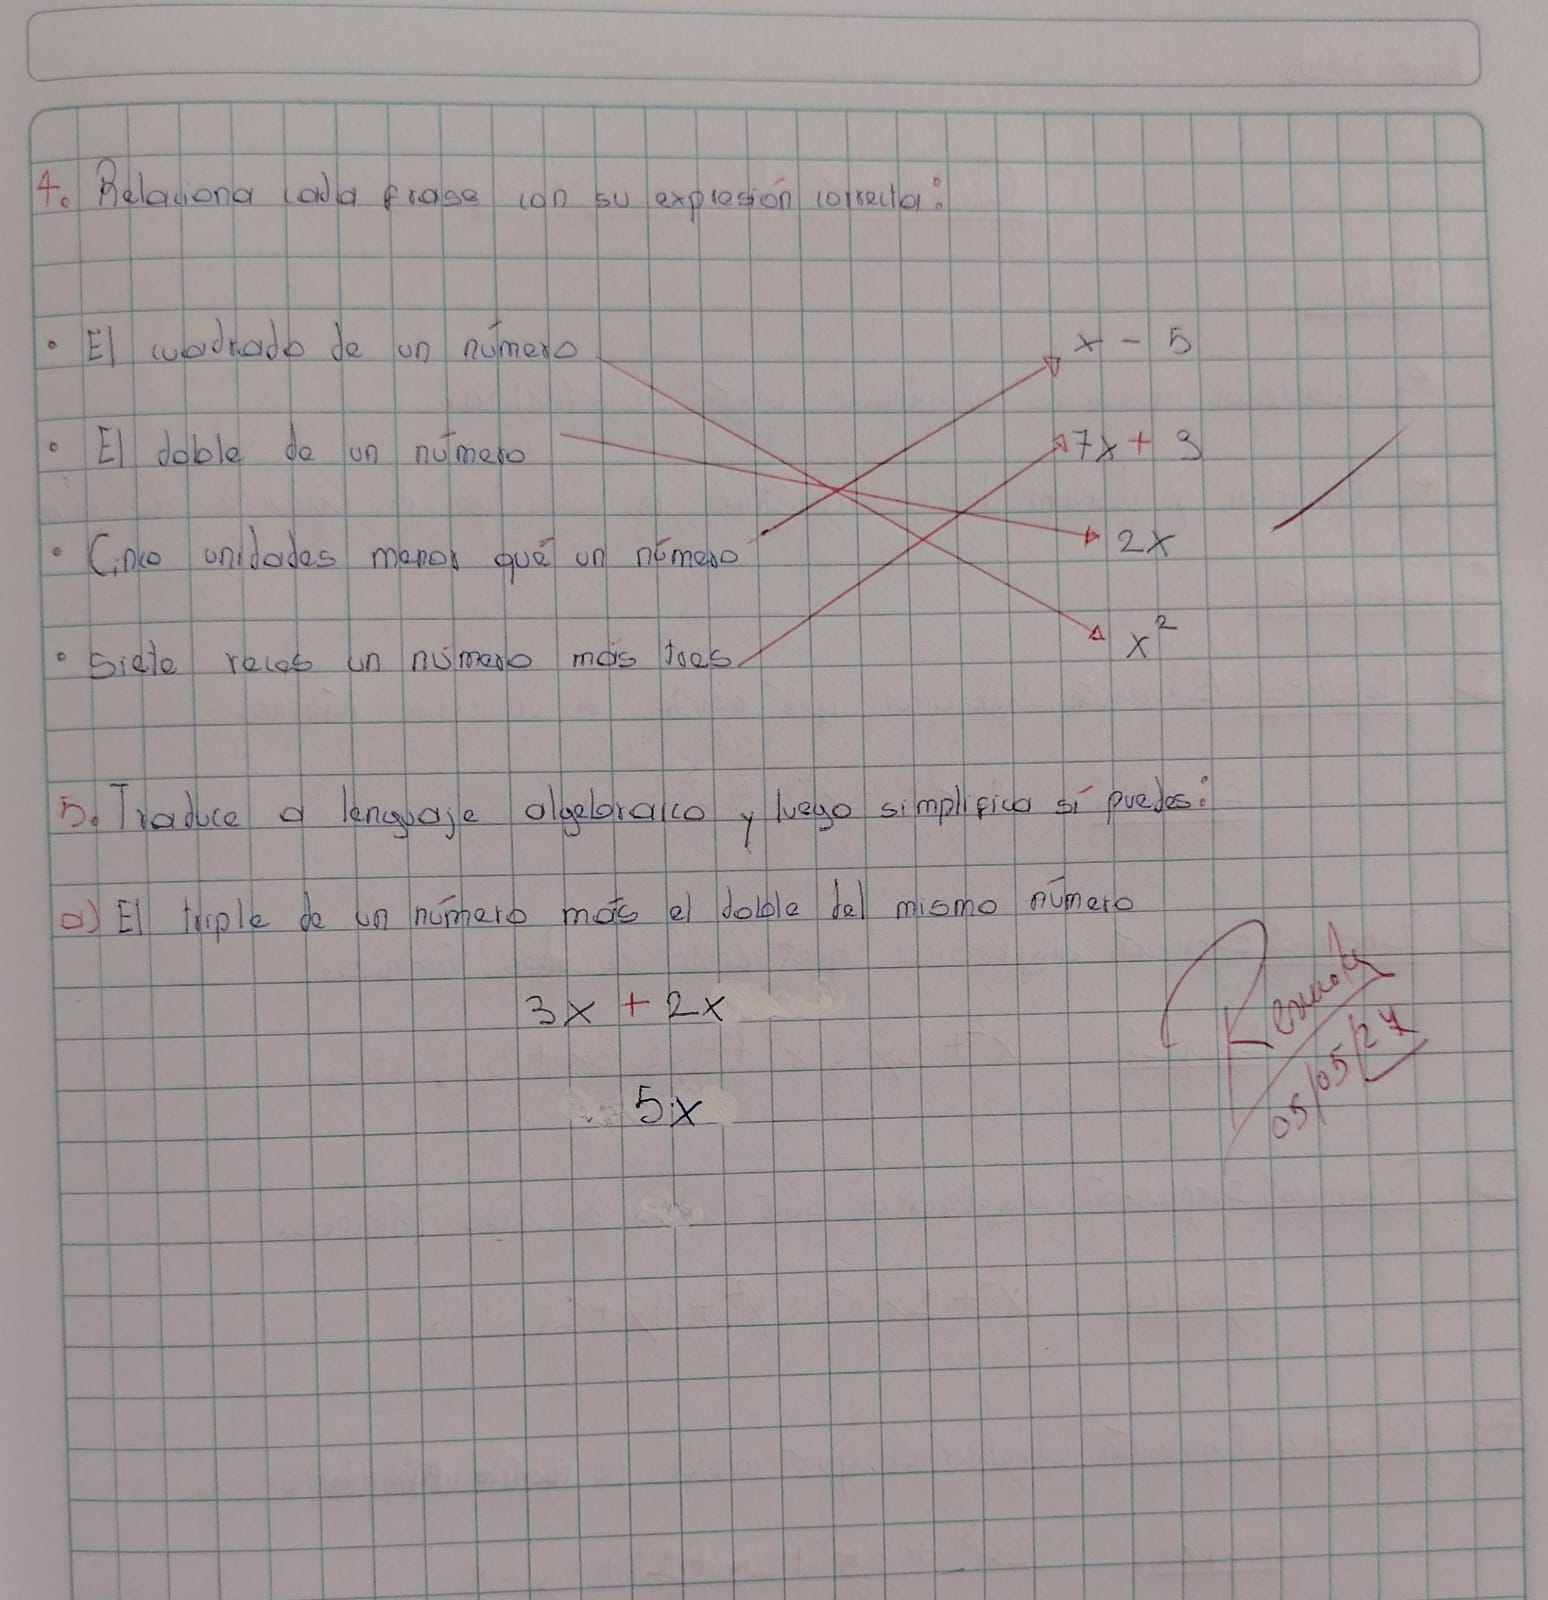 4. Relaciona cada frase con su expresión correcta:
• El cuadrado de un número
x - 5
• El doble de un número
7x + 3
• Cinco unidades menos que un número
2x
• Siete veces un número más tres
x²
5. Traduce a lenguaje algebraico y luego simplifica si puedes:
a) El triple de un número más el doble del mismo número
3x + 2x
5x
05/05/24